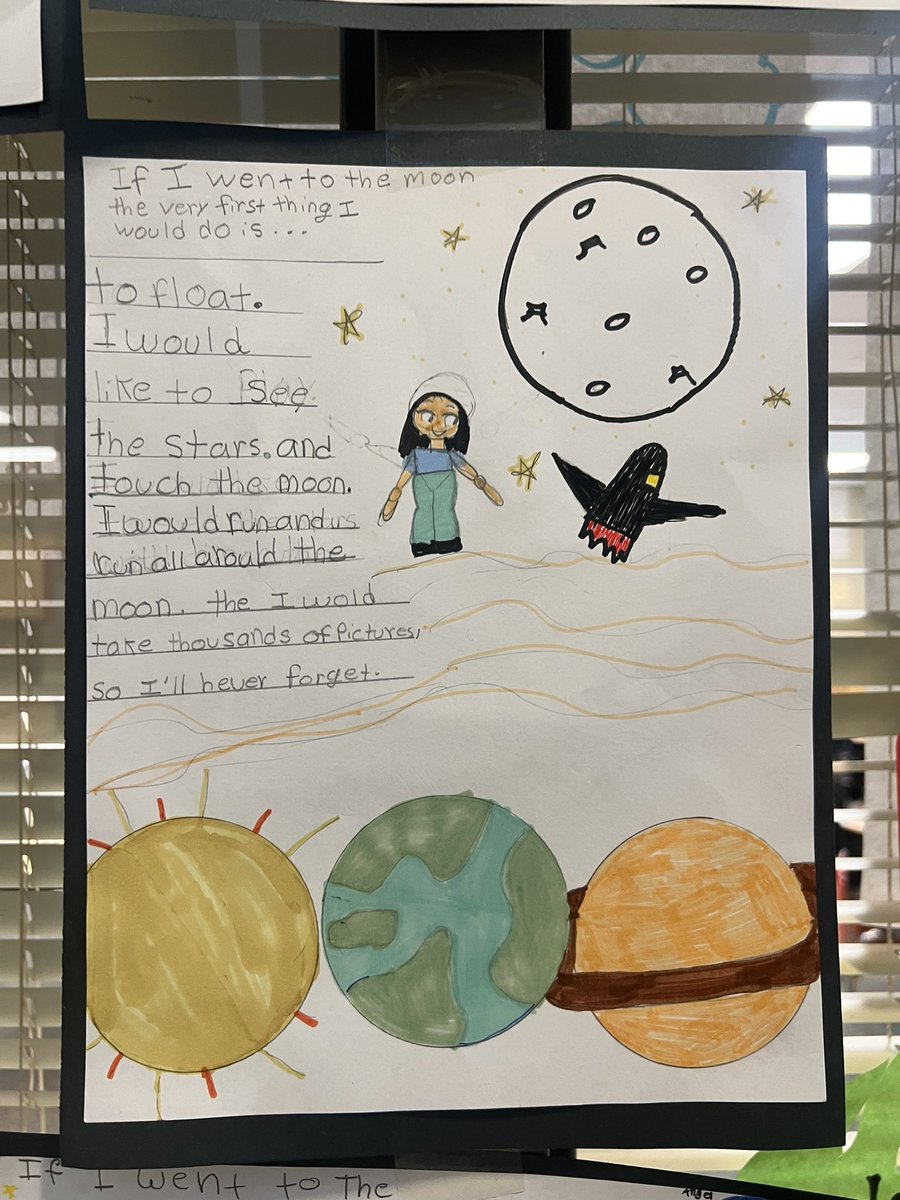 If I went to the moon
the very first thing I
would do is...
to float.
I would
like to see
the stars. and
touch the moon.
I would run and
run all arould the
moon. the I wold
take thousands of Pictures,
so I'll never forget.
If I went to The
Angel